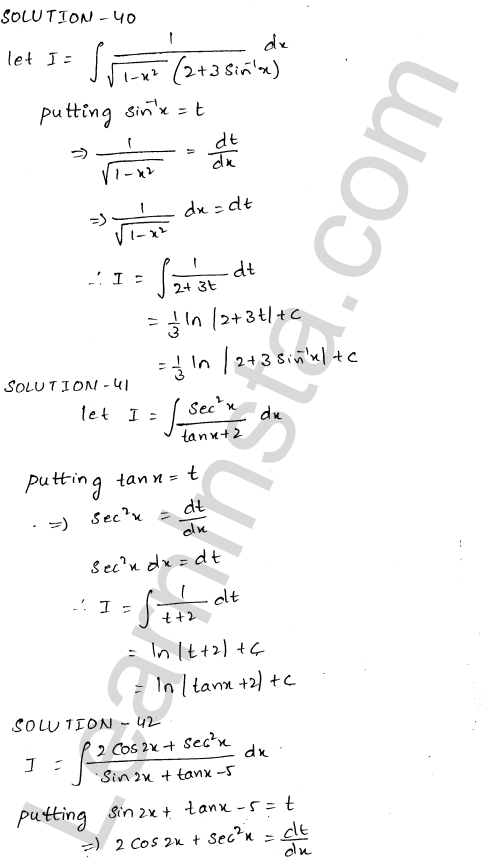 SOLUTION-40
let I = ∫ 1/(√(1-x²) (2+3 sin⁻¹x)) dx
putting sin⁻¹x = t
⇒ 1/√(1-x²) = dt/dx
⇒ 1/√(1-x²) dx = dt
∴ I = ∫ 1/(2+3t) dt
= 1/3 ln |2+3t| + c
= 1/3 ln |2+3 sin⁻¹x| + c
SOLUTION-41
let I = ∫ sec²x/(tanx+2) dx
putting tanx = t
⇒ sec²x = dt/dx
sec²x dx = dt
∴ I = ∫ 1/(t+2) dt
= ln |t+2| + c
= ln |tanx+2| + c
SOLUTION-42
I = ∫ (2 cos 2x + sec²x)/(sin 2x + tanx - 5) dx
putting sin 2x + tanx - 5 = t
⇒ 2 cos 2x + sec²x = dt/dx
LearnInsta.com